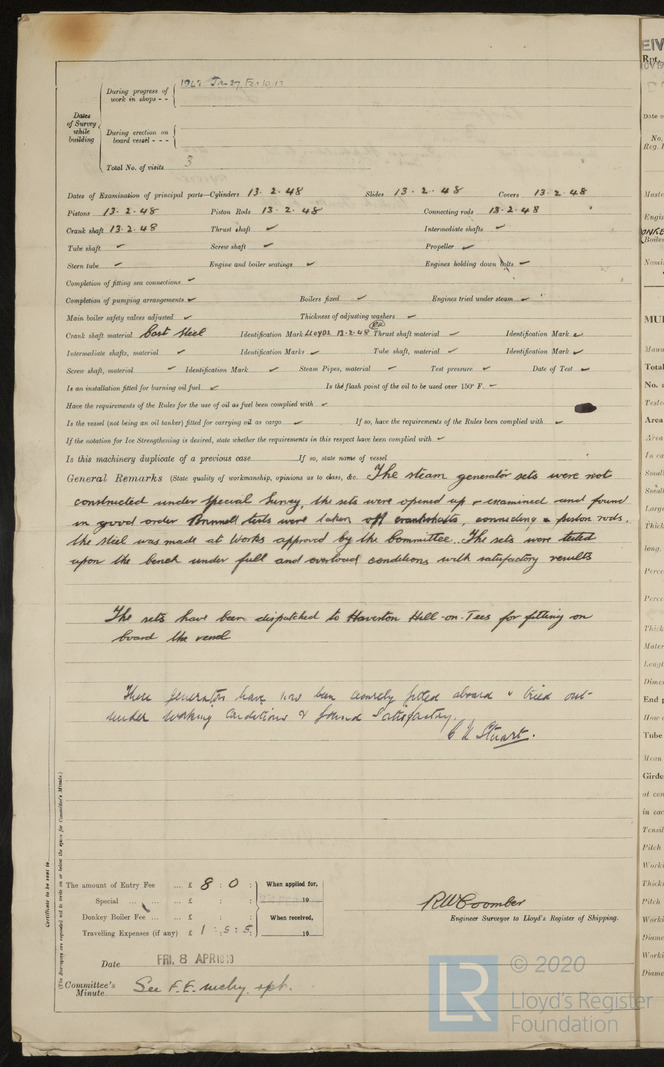 During progress of
work in shops - -
Dates
of Survey
while
building
During erection on
board vessel - - -
Total No. of visits 3
Dates of Examination of principal parts—Cylinders 13.2.48 Slides 13.2.48 Covers 13.2.48
Pistons 13.2.48 Piston Rods 13.2.48 Connecting rods 13.2.48
Crank shaft 13.2.48 Thrust shaft ✓ Intermediate shafts ✓
Tube shaft ✓ Screw shaft ✓ Propeller ✓
Stern tube ✓ Engine and boiler seatings ✓ Engines holding down bolts ✓
Completion of fitting sea connections ✓
Completion of pumping arrangements ✓ Boilers fixed ✓ Engines tried under steam ✓
Main boiler safety valves adjusted ✓ Thickness of adjusting washers ✓
Crank shaft material Cast Steel Identification Mark LLOYDS 13.2.48 Thrust shaft material ✓ Identification Mark ✓
Intermediate shafts, material ✓ Identification Marks ✓ Tube shaft, material ✓ Identification Mark ✓
Screw shaft, material ✓ Identification Mark ✓ Steam Pipes, material ✓ Test pressure ✓ Date of Test ✓
Is an installation fitted for burning oil fuel ✓ Is the flash point of the oil to be used over 150° F. ✓
Have the requirements of the Rules for the use of oil as fuel been complied with ✓
Is the vessel (not being an oil tanker) fitted for carrying oil as cargo ✓ If so, have the requirements of the Rules been complied with ✓
If the notation for Ice Strengthening is desired, state whether the requirements in this respect have been complied with ✓
Is this machinery duplicate of a previous case If so, state name of vessel
General Remarks (State quality of workmanship, opinions as to class, &c. The steam generator sets were not
constructed under Special Survey, the sets were opened up & examined and found
in good order Brunnell tests were taken off crankshafts, connecting & piston rods,
the steel was made at Works approved by the Committee. The sets were tested
upon the bench under full and overload conditions with satisfactory results
The sets have been dispatched to Haverton Hill-on-Tees for fitting on
board the vessel
These generators have now been securely fitted aboard & tried out
under working conditions & found satisfactory.
Stuart.
Certificate to be sent to
(The Surveyors are requested not to write on or below the space for Committee's Minute.)
The amount of Entry Fee ... £ 8 : 0 : When applied for,
Special ... ... £ : : 19
Donkey Boiler Fee ... £ : : When received,
Travelling Expenses (if any) £ 1 : 5 : 5 19
RW Coomber
Engineer Surveyor to Lloyd's Register of Shipping.
Date FRI. 8 APR
Committee's
Minute See F.E. mchy. rpt.
© 2020
LR
Lloyd's Register
Foundation